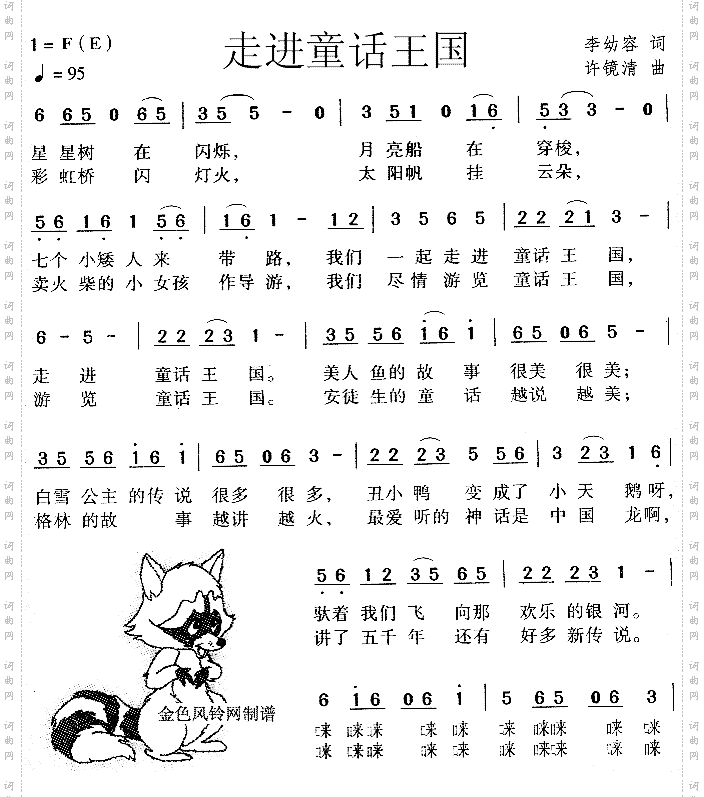 1 = F ( E )
走进童话王国
李幼容 词
♩ = 95
许镜清 曲
6 6 5 0 6 5 | 3 5 5 - 0 | 3 5 1 0 1 6 | 5 3 3 - 0 |
星 星树 在 闪烁, 月 亮船 在 穿梭,
彩 虹桥 闪 灯火, 太 阳帆 挂 云朵,
5 6 1 6 1 5 6 | 1 6 1 - 1 2 | 3 5 6 5 | 2 2 2 1 3 - |
七个 小矮 人来 带 路, 我们 一 起 走 进 童话 王 国,
卖火 柴的 小 女孩 作导 游, 我们 尽 情 游 览 童话 王 国,
6 - 5 - | 2 2 2 3 1 - | 3 5 5 6 1 6 1 | 6 5 0 6 5 - |
走 进 童话 王 国。 美人 鱼的 故 事 很美 很 美;
游 览 童话 王 国。 安徒 生的 童 话 越说 越 美;
3 5 5 6 1 6 1 | 6 5 0 6 3 - | 2 2 2 3 5 5 6 | 3 2 3 1 6 |
白雪 公主 的传 说 很多 很 多, 丑小 鸭 变 成了 小 天 鹅 呀,
格林 的故 事 越讲 越 火, 最爱 听的 神 话是 中 国 龙啊,
5 6 1 2 3 5 6 5 | 2 2 2 3 1 - |
驮着 我们 飞 向那 欢乐 的银 河。
讲了 五千 年 还有 好多 新传 说。
6 1 6 0 6 1 | 5 6 5 0 6 3 |
金色风铃网制谱
咪 咪咪 咪 咪 咪 咪咪 咪 咪
咪 咪咪 咪 咪 咪 咪咪 咪 咪
词曲网